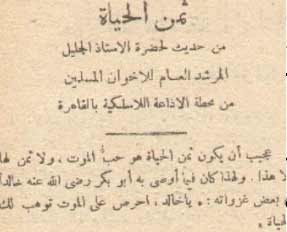 ثمن الحياة
من حديث لحضرة الاستاذ الجليل
المرشد العام للاخوان المسلمين
من محطة الاذاعة اللاسلكية بالقاهرة
عجيب أن يكون ثمن الحياة هو حب الموت ، ولا ثمن لها
لا هذا . ولهذا كان فيما أوصى به أبو بكر رضى الله عنه خالداً
بعض غزواته : « ياخالد ، احرص على الموت توهب لك
لحياة .